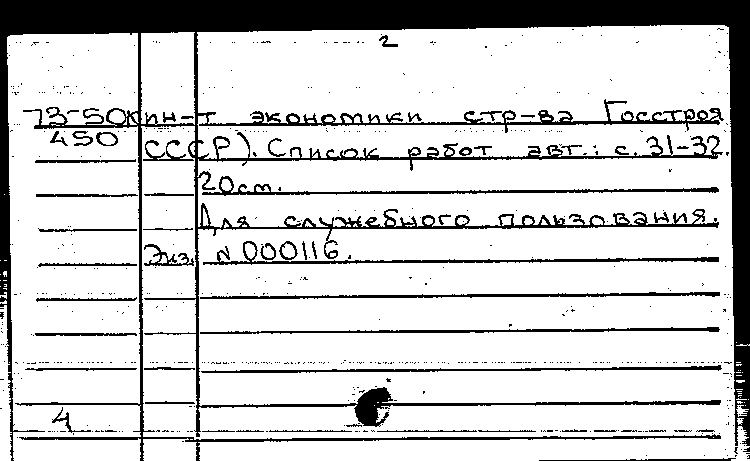 2
73-50кин-т экономики стр-ва Госстроя
450
СССР). Список работ авт.: с. 31-32.
20см.
Для служебного пользования.
Экз. N 000116.
4